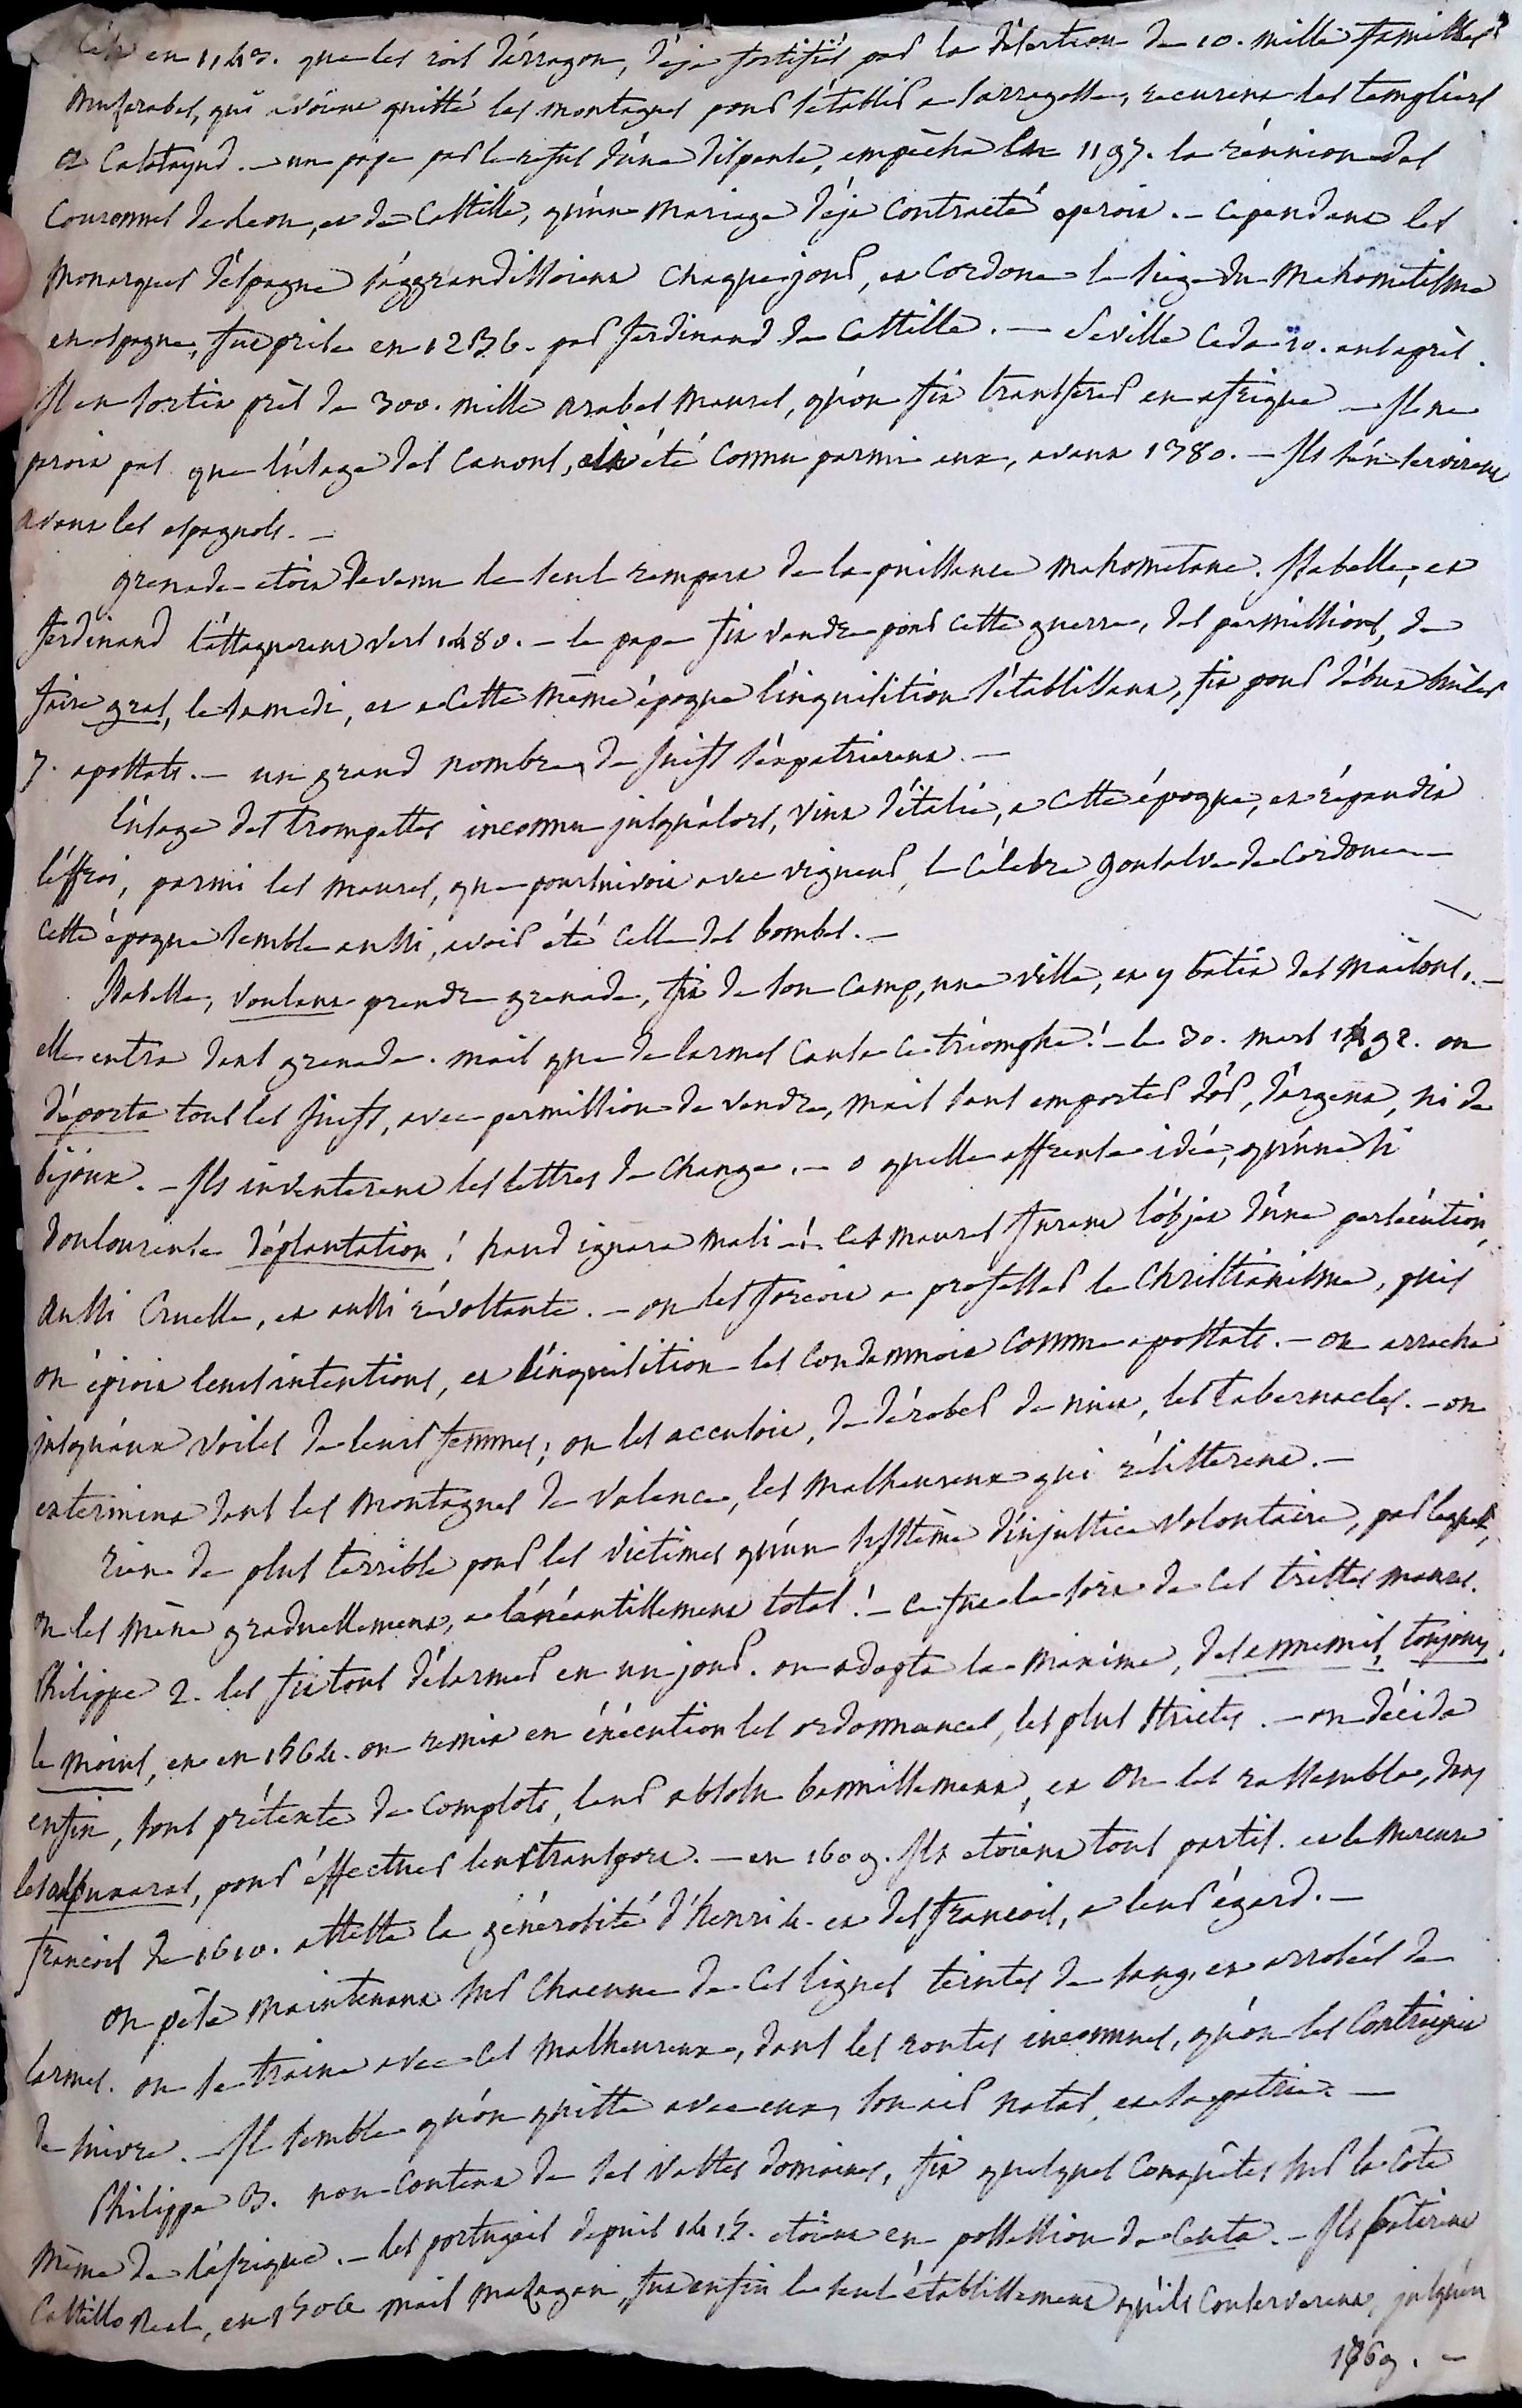 C'est en 1143. que les rois d'arragon, déja fortifiés par la désertion de 10. mille familles
musarabes, qui avoient quitté les montagnes pour s'établir a sarragosse, recurent les templiers
a Calatayud. — un pape par le refus d'une dispense, empêcha en 1197. la réunion des
Couronnes de Leon, et de Castille, qu'un mariage déja contracté operoit. — cependant les
monarques d'espagne s'aggrandissoient chaque jour, et Cordoue le siege du mahometisme
en espagne, fut prise en 1236. par ferdinand de Castille. — Seville céda 10. ans après.
Il en sortit près de 300. mille arabes maures, qu'on fit transferer en afrique — Il ne
paroit pas que l'usage des canons, ait été connu parmi eux, avant 1380. — Ils s'en servirent
avant les espagnols. —
grenade etoit devenu le seul rempart de la puissance mahometane. Isabelle, et
ferdinand l'attaquerent vers 1480. — le pape fit vendre pour cette guerre, des permissions, de
faire gras, le samedi, et a cette même époque l'inquisition s'établissant, fit pour début brûler
7. apostats. — un grand nombre de juifs s'expatrierent. —
l'usage des trompettes inconnu jusqu'alors, vint d'italie, a cette époque, et répandit
l'effroi, parmi les maures, que poursuivoit avec vigueur, le célebre gonsalve de Cordoue —
cette époque semble aussi, avoir été celle des bombes. —
Isabelle, voulant prendre grenade, fit de son camp, une ville, et y bâtit des maisons. —
elle entra dans grenade. mais que de larmes causa ce triomphe ! — le 30. mars 1492. on
déporta tous les juifs, avec permission de vendre, mais sans emporter d'or, d'argent, ni de
bijoux. — Ils inventerent les lettres de change. — o quelle affreuse idée, qu'une si
douloureuse déplantation ! haud ignara mali — ! les maures furent l'objet d'une persécution,
aussi cruelle, et aussi révoltante. — on les forcoit a professer le christianisme, puis
on épioit leurs intentions, et l'inquisition les condamnoit comme apostats. — on arracha
jusqu'aux voiles de leurs femmes ; on les accusoit, de dérober de nuit, les tabernacles. — on
extermina dans les montagnes de valence, les malheureux qui résisterent. —
rien de plus terrible pour les victimes qu'un système d'injustice volontaire, par lequel,
on les mène graduellement, a l'anéantissement total ! — ce fut le sort de ces tristes maures.
Philippe 2. les fit tous désarmer en un jour. on adopta la maxime, des ennemis, toujours
le moins, et en 1564. on remit en éxécution les ordonnances, les plus strictes. — on décida
enfin, sous prétexte de complots, leur absolu bannissement, et on les rassembla, dans
les alpuxaras, pour éffectuer leur transport. — en 1609. Ils etoient tous partis. et le mercure
francois de 1610. atteste la générosité d'henri 4. et des francois, a leur égard. —
on pèse maintenant sur chacune de ces lignes teintes de sang, et arrosées de
larmes. on se traine avec ces malheureux, dans les routes inconnues, qu'on les contraignit
de suivre. — Il semble qu'on quitte avec eux, son air natal, et sa patrie. —
Philippe 3. non content de ses vastes domaines, fit quelques conquêtes sur la côte
même de l'afrique. — les portugais depuis 1415. etoient en possession de Ceuta. — Ils bâtirent
Castillo real, en 1506 mais mazagan, fut enfin le seul établissement qu'ils conserverent, jusqu'en
1769. —